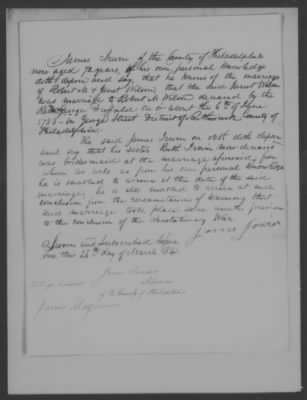 James Irwin of the County of Philadelphia
now aged 72 years, of his own personal knowledge
doth depose and say, that he knows of the marriage
of Robert M & Janet Wilson, that the said Janet Wilson
was married to Robert M Wilson deceased by the
Revd George Duffield on or about the 6th of June
1783 on George Street District of Southwark County of
Philadelphia.
The said James Irwin on oath doth depose
and say that his sister Ruth Irwin now deceased
was bridesmaid at the marriage aforesaid, from
whom as well as from his own personal knowledge
he is enabled to arrive at the date of the said
marriage, he is also enabled to arrive at said
conclusion from the circumstance of knowing that
said marriage took place some months previous
to the conclusion of the Revolutionary War.
James Irwin
Sworn and Subscribed before
me this 26th day of March 1841
Alderman
of the County of Philadelphia
James